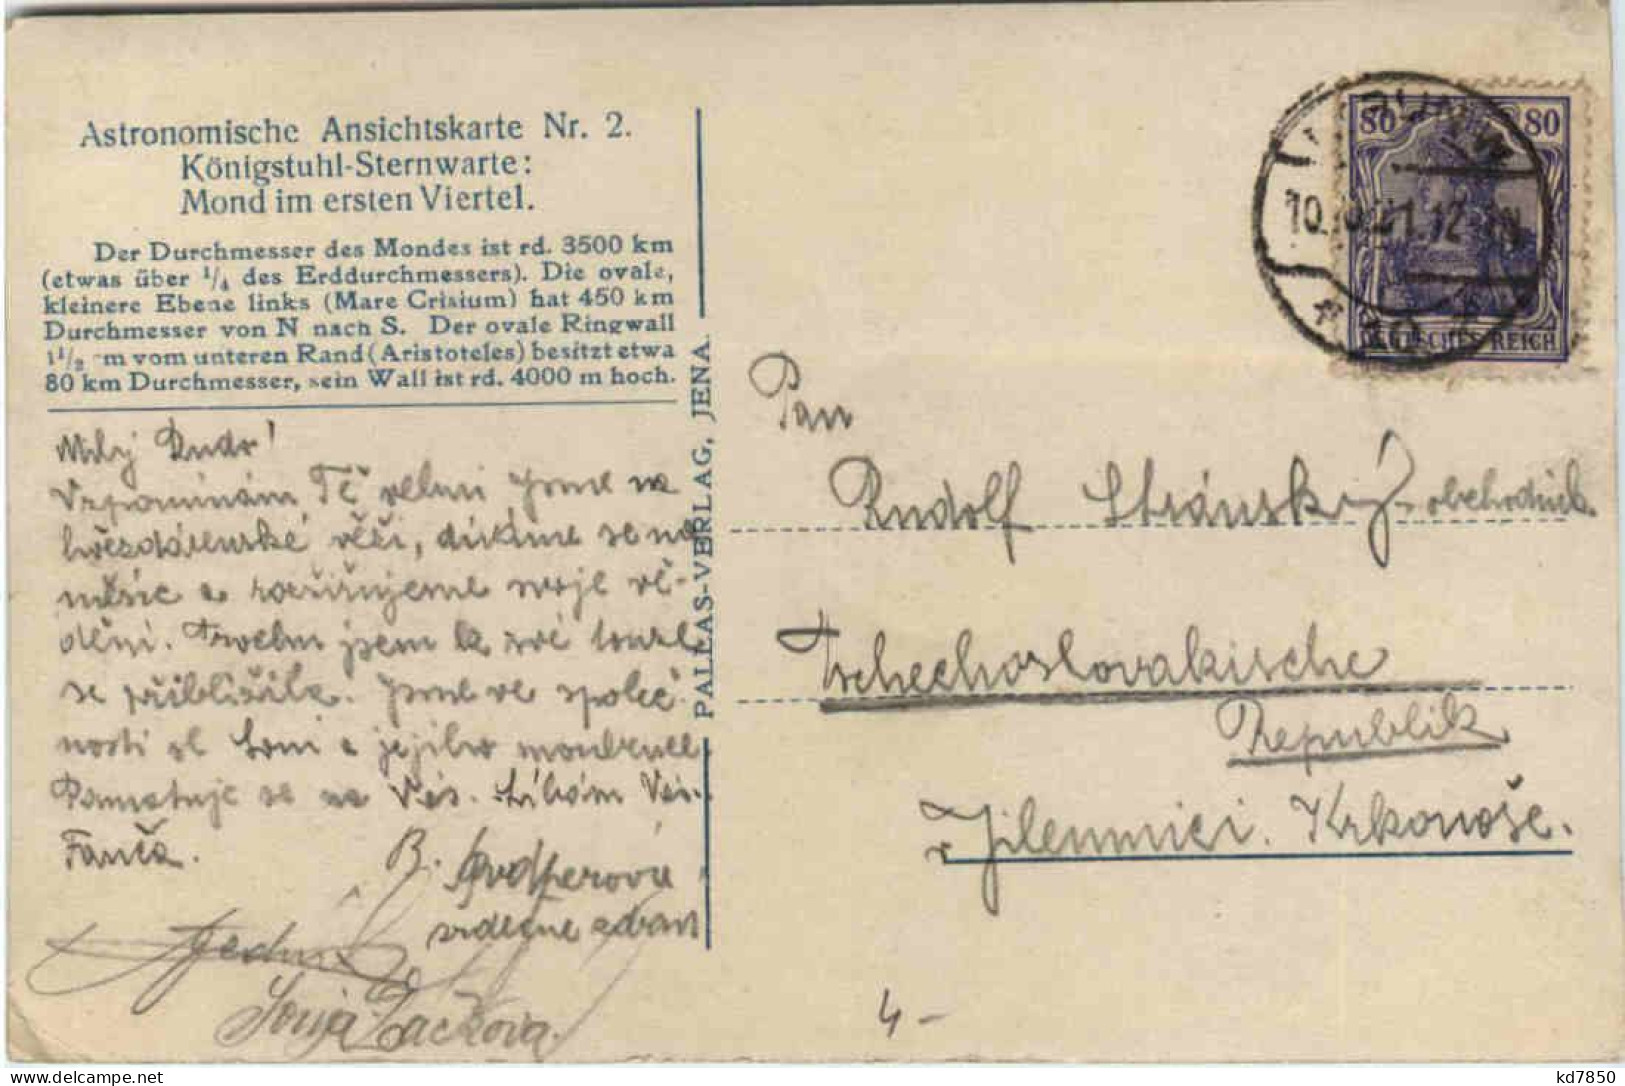 Astronomische Ansichtskarte Nr. 2.
Königstuhl-Sternwarte:
Mond im ersten Viertel.
Der Durchmesser des Mondes ist rd. 3500 km
(etwas über 1/4 des Erddurchmessers). Die ovale,
kleinere Ebene links (Mare Crisium) hat 450 km
Durchmesser von N nach S. Der ovale Ringwall
1 1/2 cm vom unteren Rand (Aristoteles) besitzt etwa
80 km Durchmesser, sein Wall ist rd. 4000 m hoch.
PALLAS-VERLAG, JENA.
Milý Rudo!
Vzpomínám Tě velmi jsme na
hvězdárenské věži, díváme se na
měsíc a rozšiřujeme svoje vě-
dění. jsem k své touze
se přiblížila. Jsme ve společ-
nosti sl. Soni a jejího
Pamatuje se na Vás. Líbám Vás.
Fanča.
B.
srdečně zdraví
Sonja Žačkova.
80 80
DEUTSCHES REICH
Pan
Rudolf Stránský obchodník
Tschechoslovakische
Republik
Jilemnici. Krkonoše.
4-
kd7850